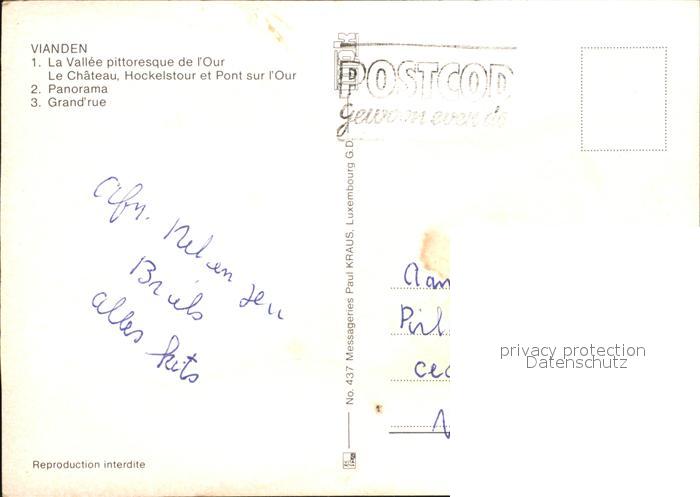 VIANDEN
1. La Vallée pittoresque de l'Our
Le Château, Hockelstour et Pont sur l'Our
2. Panorama
3. Grand'rue
POSTCOD
gewoon even de
No. 437 Messageries Paul KRAUS, Luxembourg G.D.
Afz. Nel en
Bruls
alles kits
privacy protection
Datenschutz
Reproduction interdite